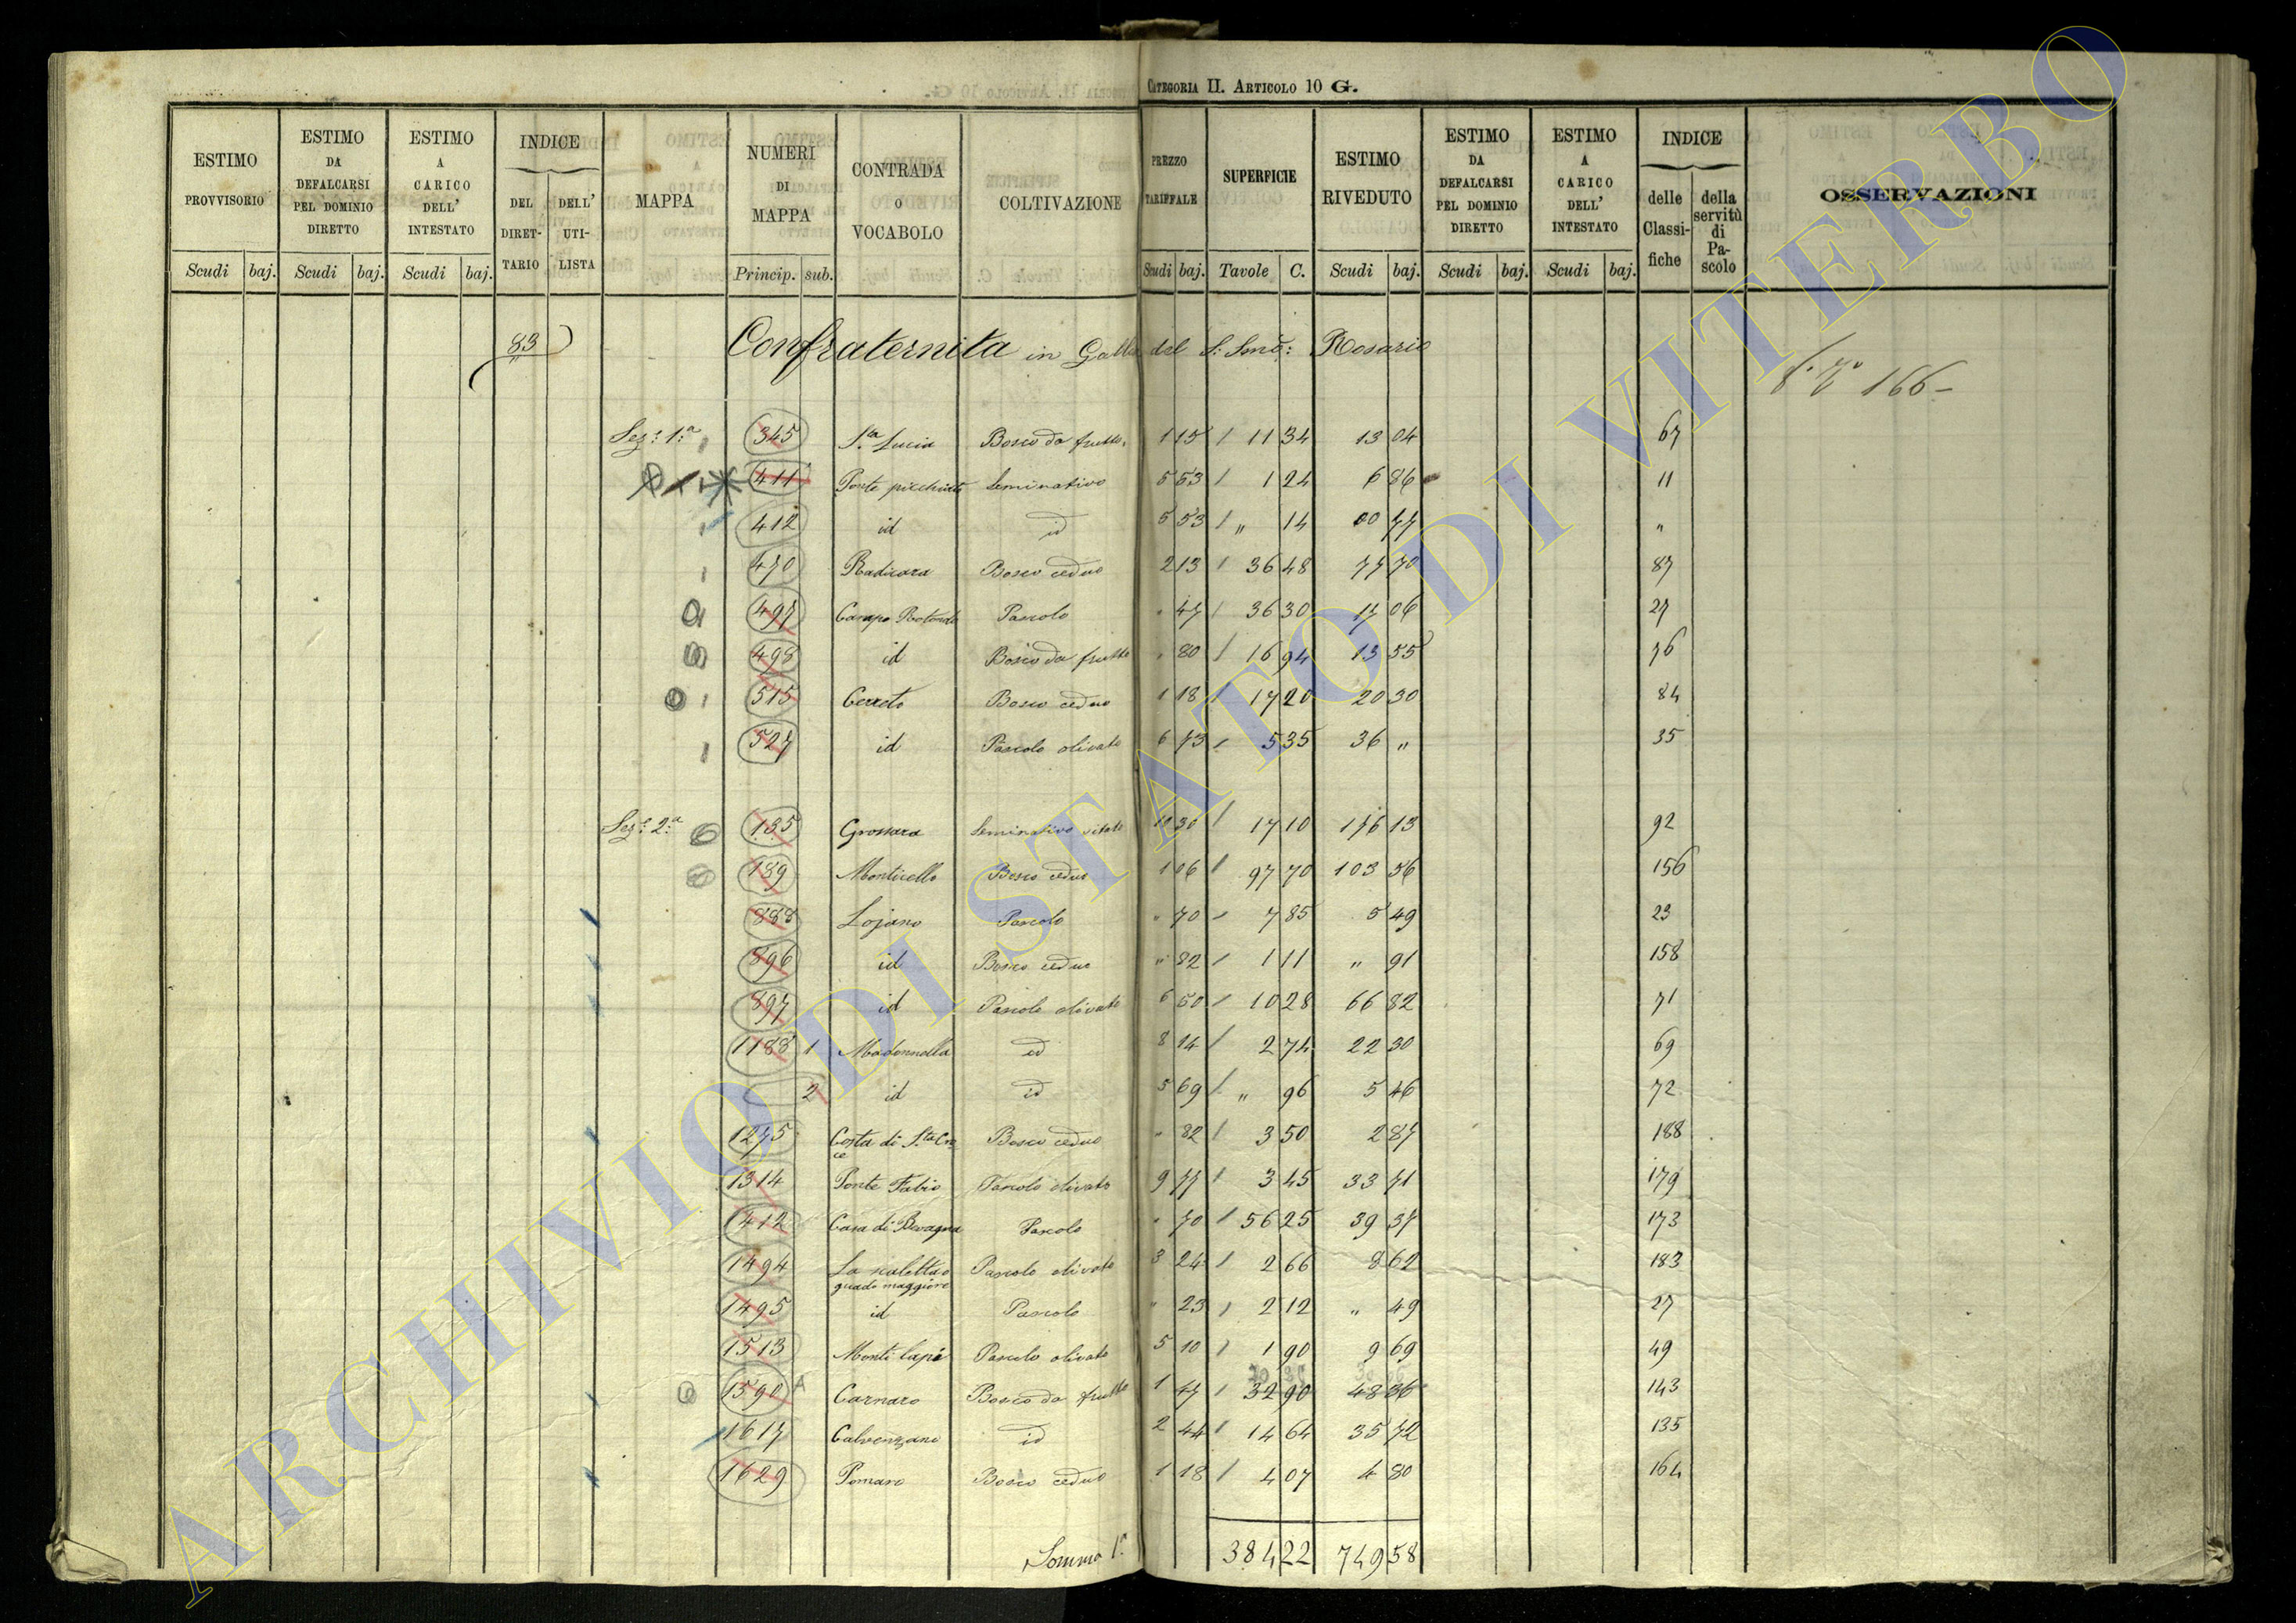 CATEGORIA II. ARTICOLO 10 G.
ESTIMO PROVVISORIO | ESTIMO DA DEFALCARSI PEL DOMINIO DIRETTO | ESTIMO A CARICO DELL' INTESTATO | INDICE | MAPPA | NUMERI DI MAPPA | CONTRADA O VOCABOLO | COLTIVAZIONE | PREZZO TARIFFALE | SUPERFICIE | ESTIMO RIVEDUTO | ESTIMO DA DEFALCARSI PEL DOMINIO DIRETTO | ESTIMO A CARICO DELL' INTESTATO | INDICE | OSSERVAZIONI
DEL DIRETTARIO | DELL' UTILISTA | delle Classifiche | della servitù di Pascolo
Scudi | baj. | Scudi | baj. | Scudi | baj. | Princip. | sub. | Scudi | baj. | Tavole | C. | Scudi | baj. | Scudi | baj. | Scudi | baj.
83 Confraternita in Galle del S: Smo: Rosario
166
Sez: 1:a 345 Sta Lucia Bosco da frutto 1 15 11 34 13 04 67
411 Ponte picchiato Seminativo 5 53 1 24 6 86 11
412 id id 5 53 " 14 00 77 "
470 Radicara Bosco ceduo 2 13 36 48 77 70 87
497 Campo Rotondo Pascolo " 47 36 30 17 06 27
498 id Bosco da frutto " 80 16 94 13 55 76
515 Cerreto Bosco ceduo 1 18 17 20 20 30 84
527 id Pascolo olivato 6 73 5 35 36 " 35
Sez: 2:a 135 Grossara Seminativo vitato 10 30 17 10 176 13 92
139 Monticello Bosco ceduo 1 06 97 70 103 56 156
888 Lojano Pascolo " 70 7 85 5 49 23
896 id Bosco ceduo " 82 1 11 " 91 158
897 id Pascolo olivato 6 50 10 28 66 82 71
1188 1 Madonnella id 8 14 2 74 22 30 69
2 id id 5 69 " 96 5 46 72
1275 Costa di Sta Croce Bosco ceduo " 82 3 50 2 87 188
1314 Ponte Fabio Pascolo olivato 9 77 3 45 33 71 179
412 Casa di Bevagna Pascolo " 70 56 25 39 37 173
1494 La scaletta o guado maggiore Pascolo olivato 3 24 2 66 8 62 183
1495 id Pascolo " 23 2 12 " 49 27
1513 Monti lapi Pascolo olivato 5 10 1 90 9 69 49
1590 A Carnaro Bosco da frutto 1 47 32 90 48 36 143
1617 Calvenzano id 2 44 14 64 35 72 135
1629 Pomaro Bosco ceduo 1 18 4 07 4 80 164
Somma 1a 384 22 749 58
ARCHIVIO DI STATO DI VITERBO